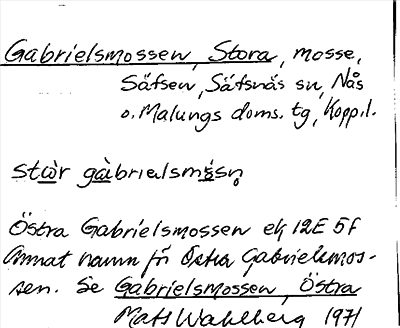 Gabrielsmossen, Stora, mosse,
Säfsen, Säfsnäs sn, Nås
o. Malungs doms. tg, Kopp.l.
Östra Gabrielsmossen ek 12E 5f
Annat namn för Östra Gabrielsmos-
sen. Se Gabrielsmossen, Östra
Mats Wahlberg 1971